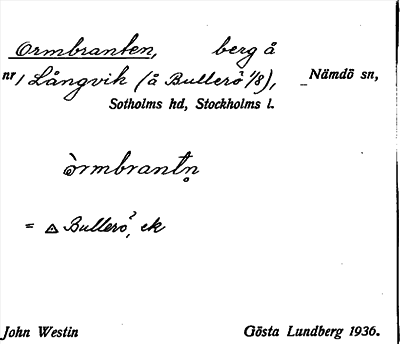 Ormbranten, berg å
nr 1 Långvik (å Bullerö 1/8), Nämdö sn,
Sotholms hd, Stockholms l.
òrmbrantn̥
= △ Bullerö, ek
John Westin Gösta Lundberg 1936.